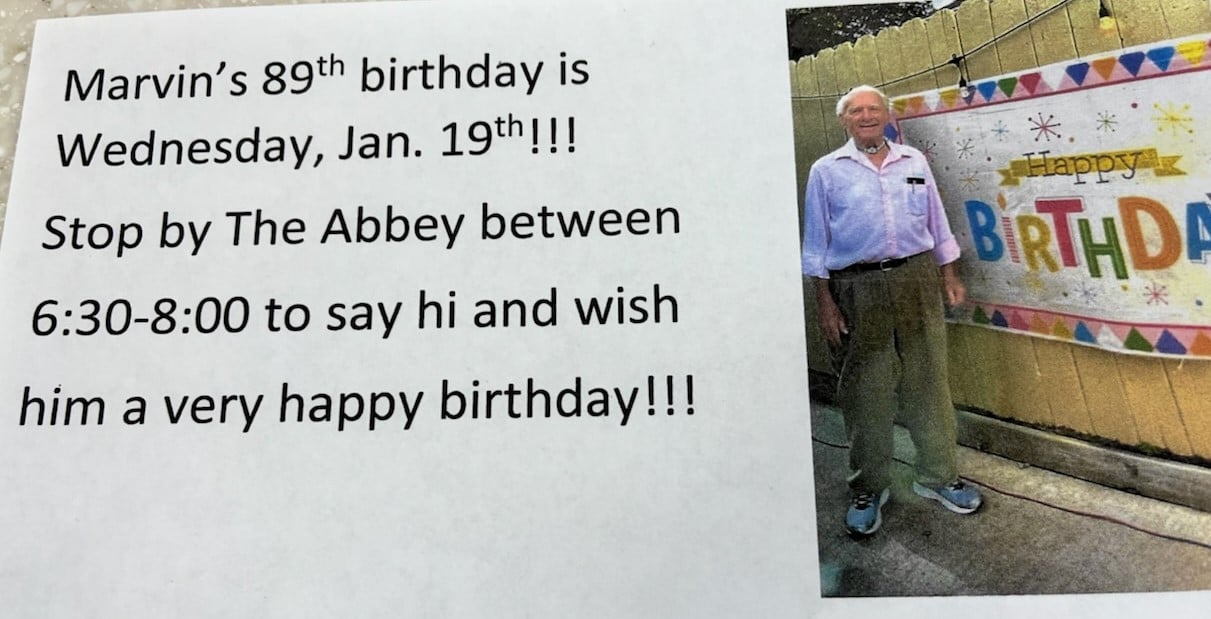 Marvin’s 89th birthday is
Wednesday, Jan. 19th!!!
Stop by The Abbey between
6:30-8:00 to say hi and wish
him a very happy birthday!!!
Happy
BIRTHDA